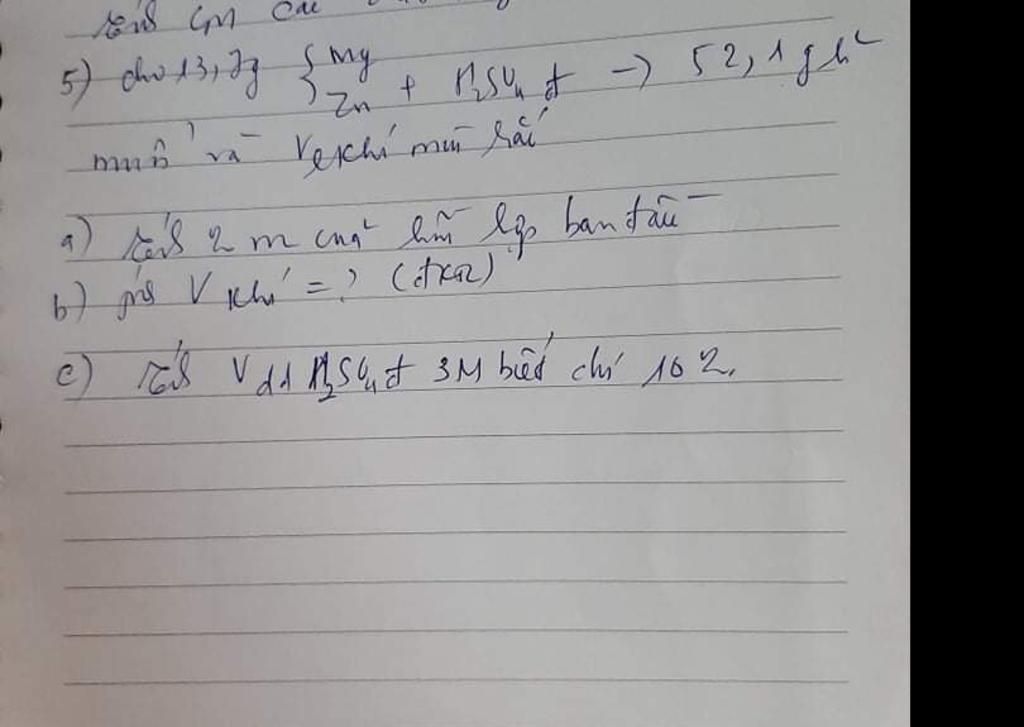 tính CM các
5) cho 13,7g { Mg Zn + H2SO4 đ → 52,1 g h²
muối và V khí mùi hắc
a) tính % m của hỗn hợp ban đầu
b) tính V khí = ? (đktc)
c) tính V dd H2SO4 đ 3M biết chỉ 10 %.